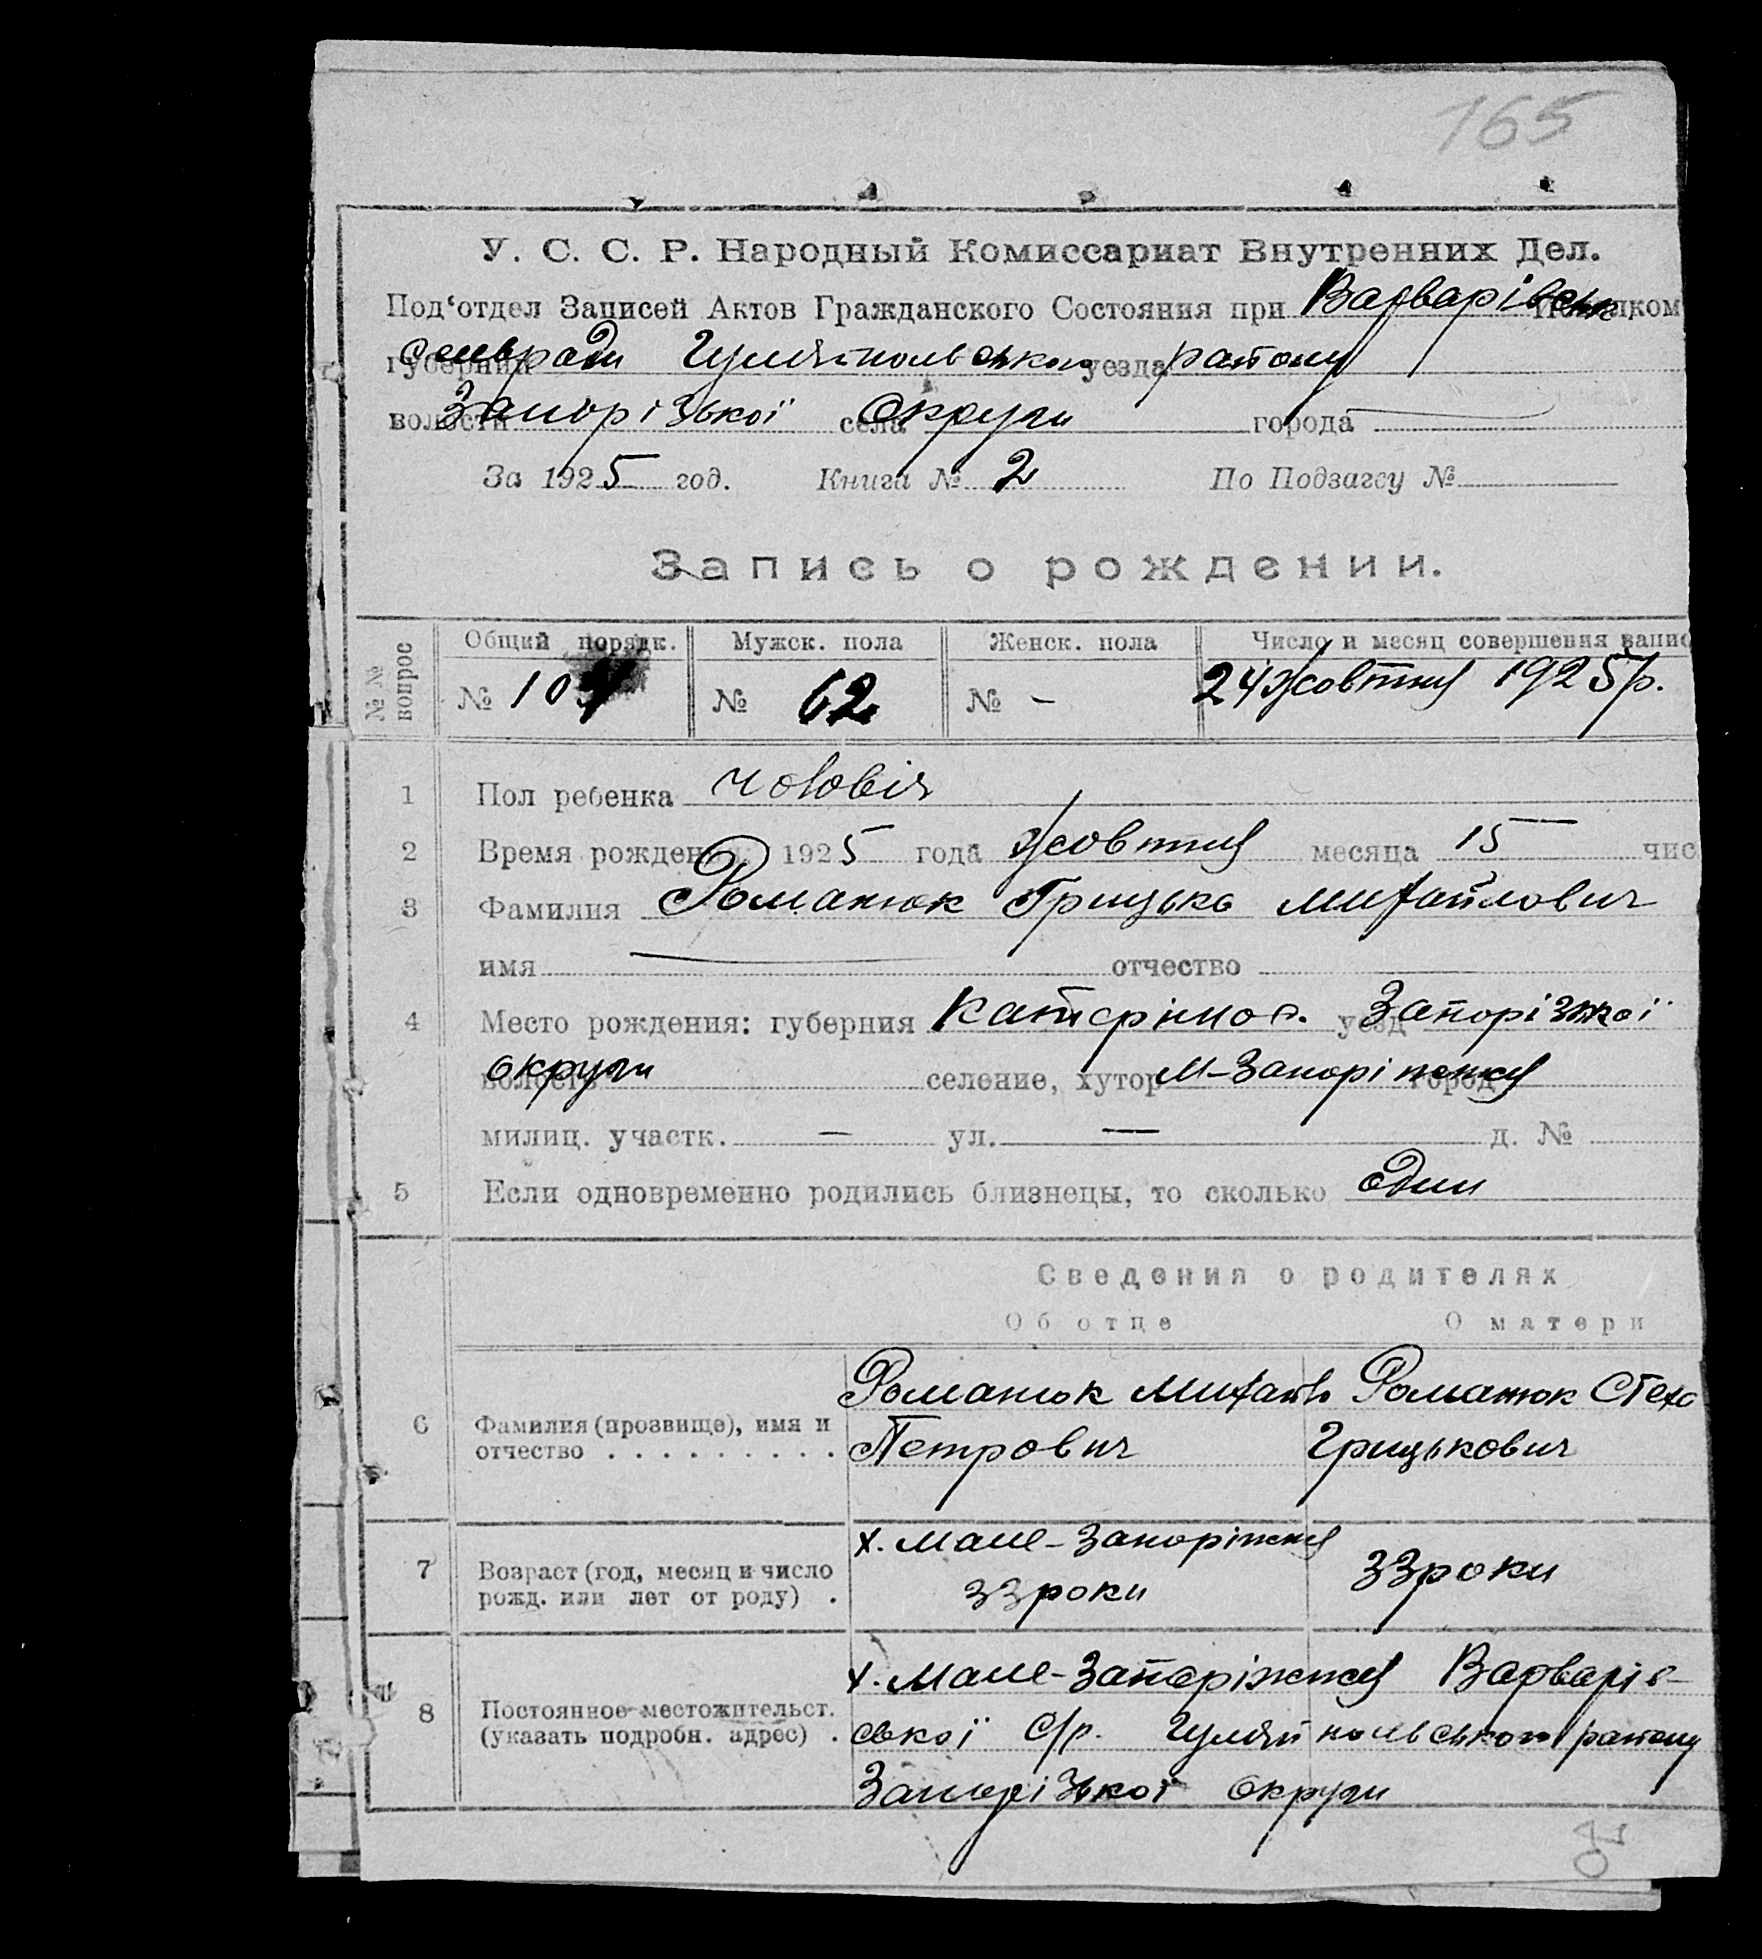 165
У. С. С. Р. Народный Комиссариат Внутренних Дел.
Под‘отдел Записей Актов Гражданского Состояния при Варварівськ Исполком
губернии сельради Гуляйпольського уезда району
волости Запорізької села Округи города —
За 1925 год. Книга № 2 По Подзагсу №
Запись о рождении.
№№ вопрос Общий порядк. Мужск. пола Женск. пола Число и месяц совершения запис
№ 10 № 62 № - 24 Жовтня 1925 р.
1 Пол ребенка чоловіч
2 Время рожден 1925 года Жовтня месяца 15 чис
3 Фамилия Романюк Грицько Михайлович
имя — отчество
4 Место рождения: губерния Катерінос. уезд Запорізької
волость округи селение, хутор М-Запоріжжя город
милиц. участк. — ул. — д. №
5 Если одновременно родились близнецы, то сколько один
Сведения о родителях
Об отце О матери
Романюк Михайло Романюк Стеха
6 Фамилия (прозвище), имя и
отчество . . . . . . . . . Петрович Грицькович
х. Мале-Запоріжжя
7 Возраст (год, месяц и число
рожд. или лет от роду) . 33 роки 33 роки
х. Мале-Запоріжжя Варварів-
8 Постоянное местожительст.
(указать подробн. адрес) . ської с/р. Гуляйпольського району
Запорізької округи